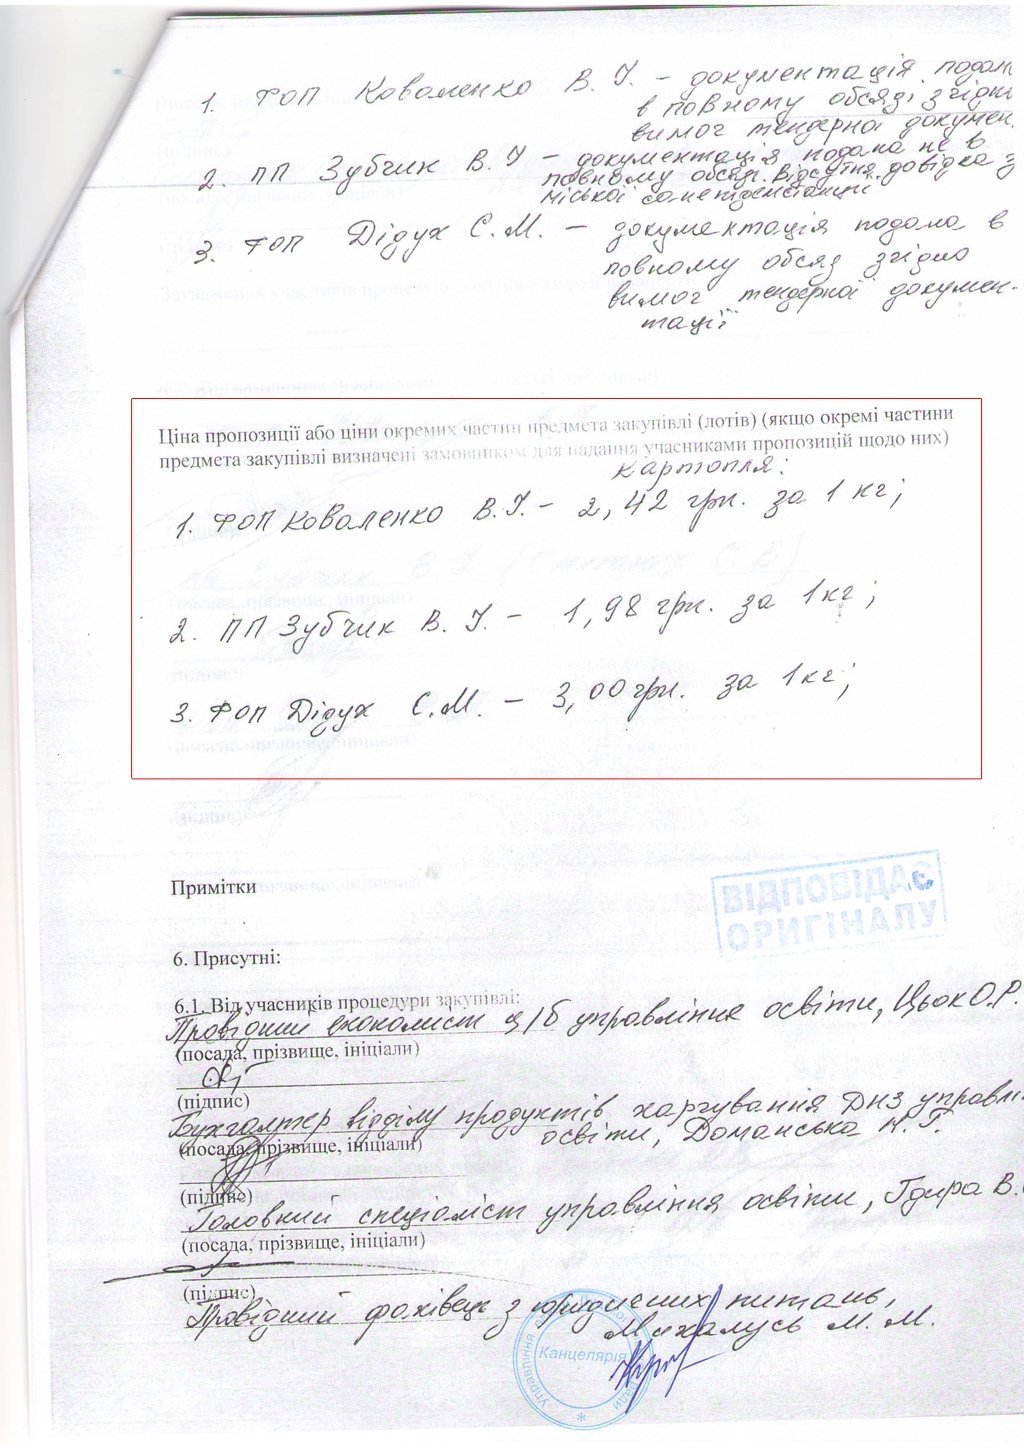 1. ФОП Коваленко В. І. – документація подан
в повному обсязі згідн
вимог тендерної докумен.
2. ПП Зубчик В. І – документація подана не в
повному обсязі. Відсутня довідка з
міської санепідемстанції
3. ФОП Дідух С.М. – документація подана в
повному обсяз згідно
вимог тендерної докумен-
тації
Ціна пропозиції або ціни окремих частин предмета закупівлі (лотів) (якщо окремі частини
предмета закупівлі визначені замовником для надання учасниками пропозицій щодо них)
картопля:
1. ФОП Коваленко В.І. – 2,42 грн. за 1 кг;
2. ПП Зубчик В. І. – 1,98 грн. за 1кг;
3. ФОП Дідух С.М. – 3,00 грн. за 1кг;
Примітки
ВІДПОВІДАЄ
ОРИГІНАЛУ
6. Присутні:
6.1. Від учасників процедури закупівлі:
Провідний економіст ц/б управління освіти, Цьок О.Р.
(посада, прізвище, ініціали)
(підпис)
Бухгалтер відділу продуктів харчування ДНЗ управлі
освіти, Доманська Н. Г.
(посада, прізвище, ініціали)
(підпис)
Головний спеціаліст управління освіти, Гдира В.
(посада, прізвище, ініціали)
(підпис)
Провідний фахівець з юридичних питань,
Михалусь М. М.
Канцелярія